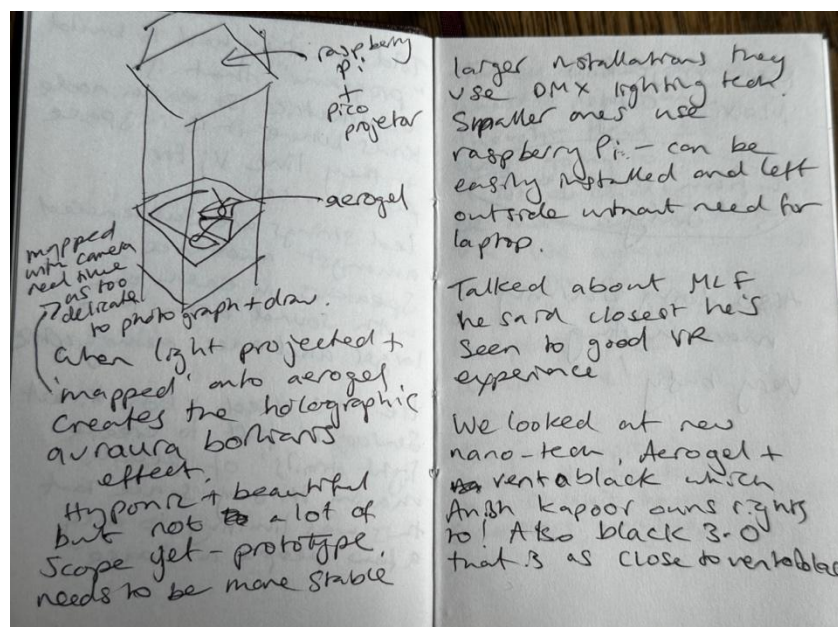 raspberry
Pi
+
pico
projetor
aerogel
mapped
with camera
real time
as too
delicate
to photograph + draw.
When light projected +
'mapped' onto aerogel
creates the holographic
auraura borlians
effect.
Hyponiz + beautiful
but not a lot of
scope yet - prototype.
needs to be more stable
larger installations they
use DMX lighting tech.
Smaller ones use
raspberry Pi - can be
easily installed and left
outside without need for
laptop.
Talked about MLF
he said closest he's
seen to good VR
experience
We looked at new
nano-tech, Aerogel +
ventablack which
Anish Kapoor owns rights
to! Also black 3.0
that is as close to ventablac